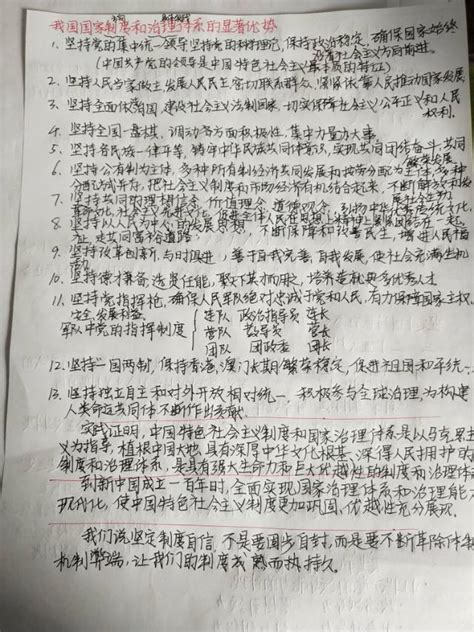 我国国家制度和治理体系的显著优势
1. 坚持党的集中统一领导坚持党的科学理论,保持政治稳定,确保国家始终
(中国共产党的领导是中国特色社会主义最本质的特征)
沿着社会主义方向前进。
2. 坚持人民当家做主,发展人民民主,密切联系群众,紧紧依靠人民推动国家发展
3. 坚持全面依法治国,建设社会主义法制国家,切实保障社会主义公平正义和人民
权利.
4. 坚持全国一盘棋,调动各方面积极性,集中力量办大事.
5. 坚持各民族一律平等,铸牢中华民族共同体意识,实现共同团结奋斗,共同
繁荣发展.
6. 坚持公有制为主体,多种所有制经济共同发展和按劳分配为主体,多种
分配方式并存,把社会主义制度和市场经济有机结合起来,不断解放和
发展社会生产力
7. 坚持共同的理想信念,价值理念,道德观念,弘扬中华优秀传统文化,
革命文化,社会主义先进文化,促进全体人民在思想上精神上紧紧团结在一起
8. 坚持以人民为中心的发展思想,不断保障和改善民生,增进人民福
祉,走共同富裕道路.
9. 坚持改革创新,与时俱进,善于自我完善,自我发展,使社会充满生机
活力
10. 坚持德才兼备,选贤任能,聚天下英才而用之,培养造就更多优秀人才
11. 坚持党指挥枪,确保人民军队绝对忠诚于党和人民,有力保障国家主权,
安全,发展利益.
军队中党的指挥制度
连队 政治指导员 连长
营队 教导员 营长
团队 团政委 团长
12. 坚持一国两制,保持香港,澳门长期繁荣稳定,促进祖国和平统一.
13. 坚持独立自主和对外开放相对统一,积极参与全球治理,为构建
人类命运共同体不断作出贡献.
实践证明,中国特色社会主义制度和国家治理体系是以马克思主
义为指导,植根中国大地,具有深厚中华文化根基,深得人民拥护的
制度和治理体系,是具有强大生命力和巨大优越性的制度和治理体
到新中国成立一百年时,全面实现国家治理体系和治理能
现代化,使中国特色社会主义制度更加巩固,优越性充分展现.
我们说坚定制度自信,不是要固步自封,而是要不断革除体
机制弊端,让我们的制度成熟而持久.